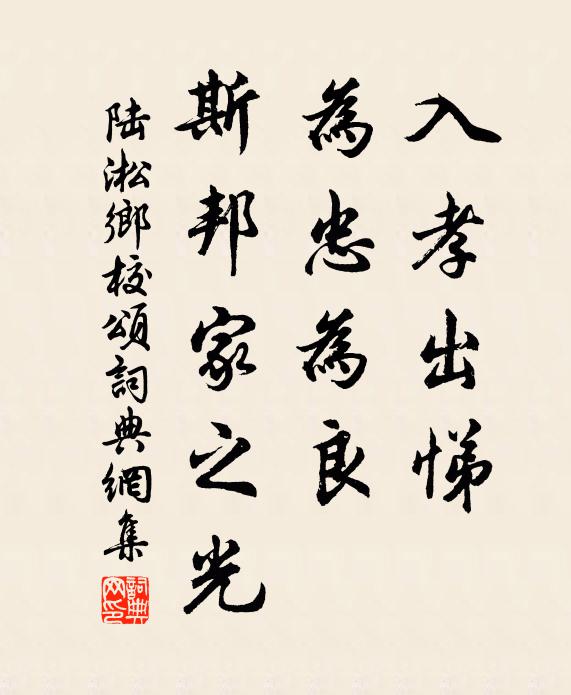 入孝出悌
為忠為良
斯邦家之光
陆淞鄉校頌詞典網集
詞典网印